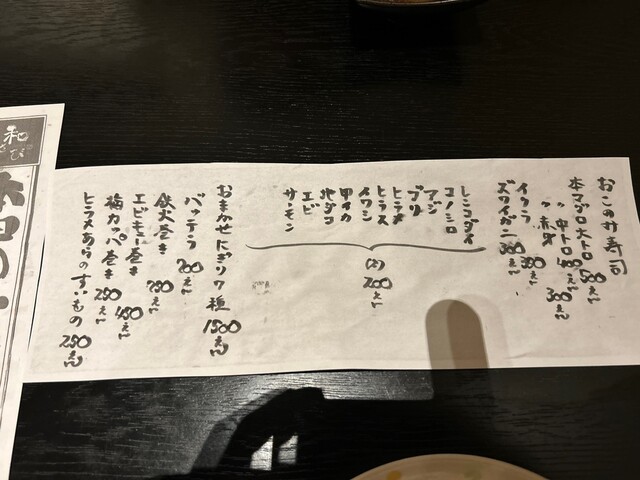 おこのみ寿司
本マグロ大トロ 500えん
〃 中トロ 400えん
〃 赤身 300えん
イクラ 350えん
ズワイガニ 300えん
レンコダイ
コノシロ
アジ
ブリ
ヒラメ
ヒラス
イワシ
甲イカ
地ダコ
エビ
サーモン
(2カン) 200えん
おまかせにぎり7種 1500えん
バッテラ 700えん
鉄火巻き 750えん
エビキュー巻き 450えん
梅カッパ巻き 250えん
ヒラメあらのすいもの 250えん
和